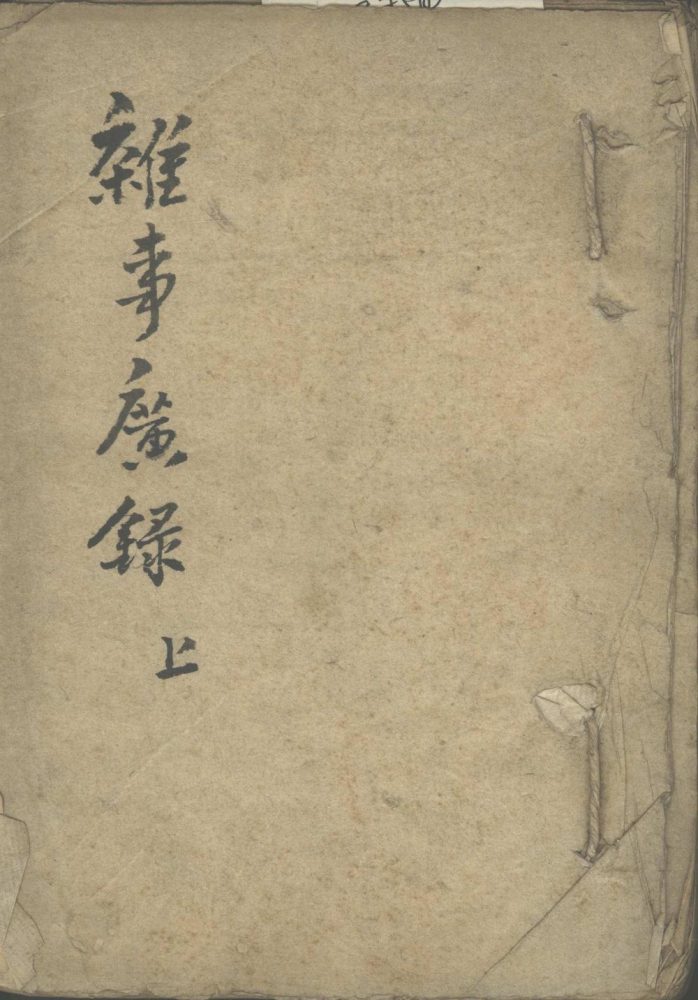 雜事廣録 上